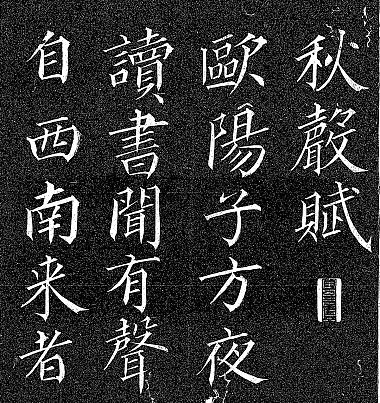 秋聲賦
歐陽子方夜
讀書聞有聲
自西南来者